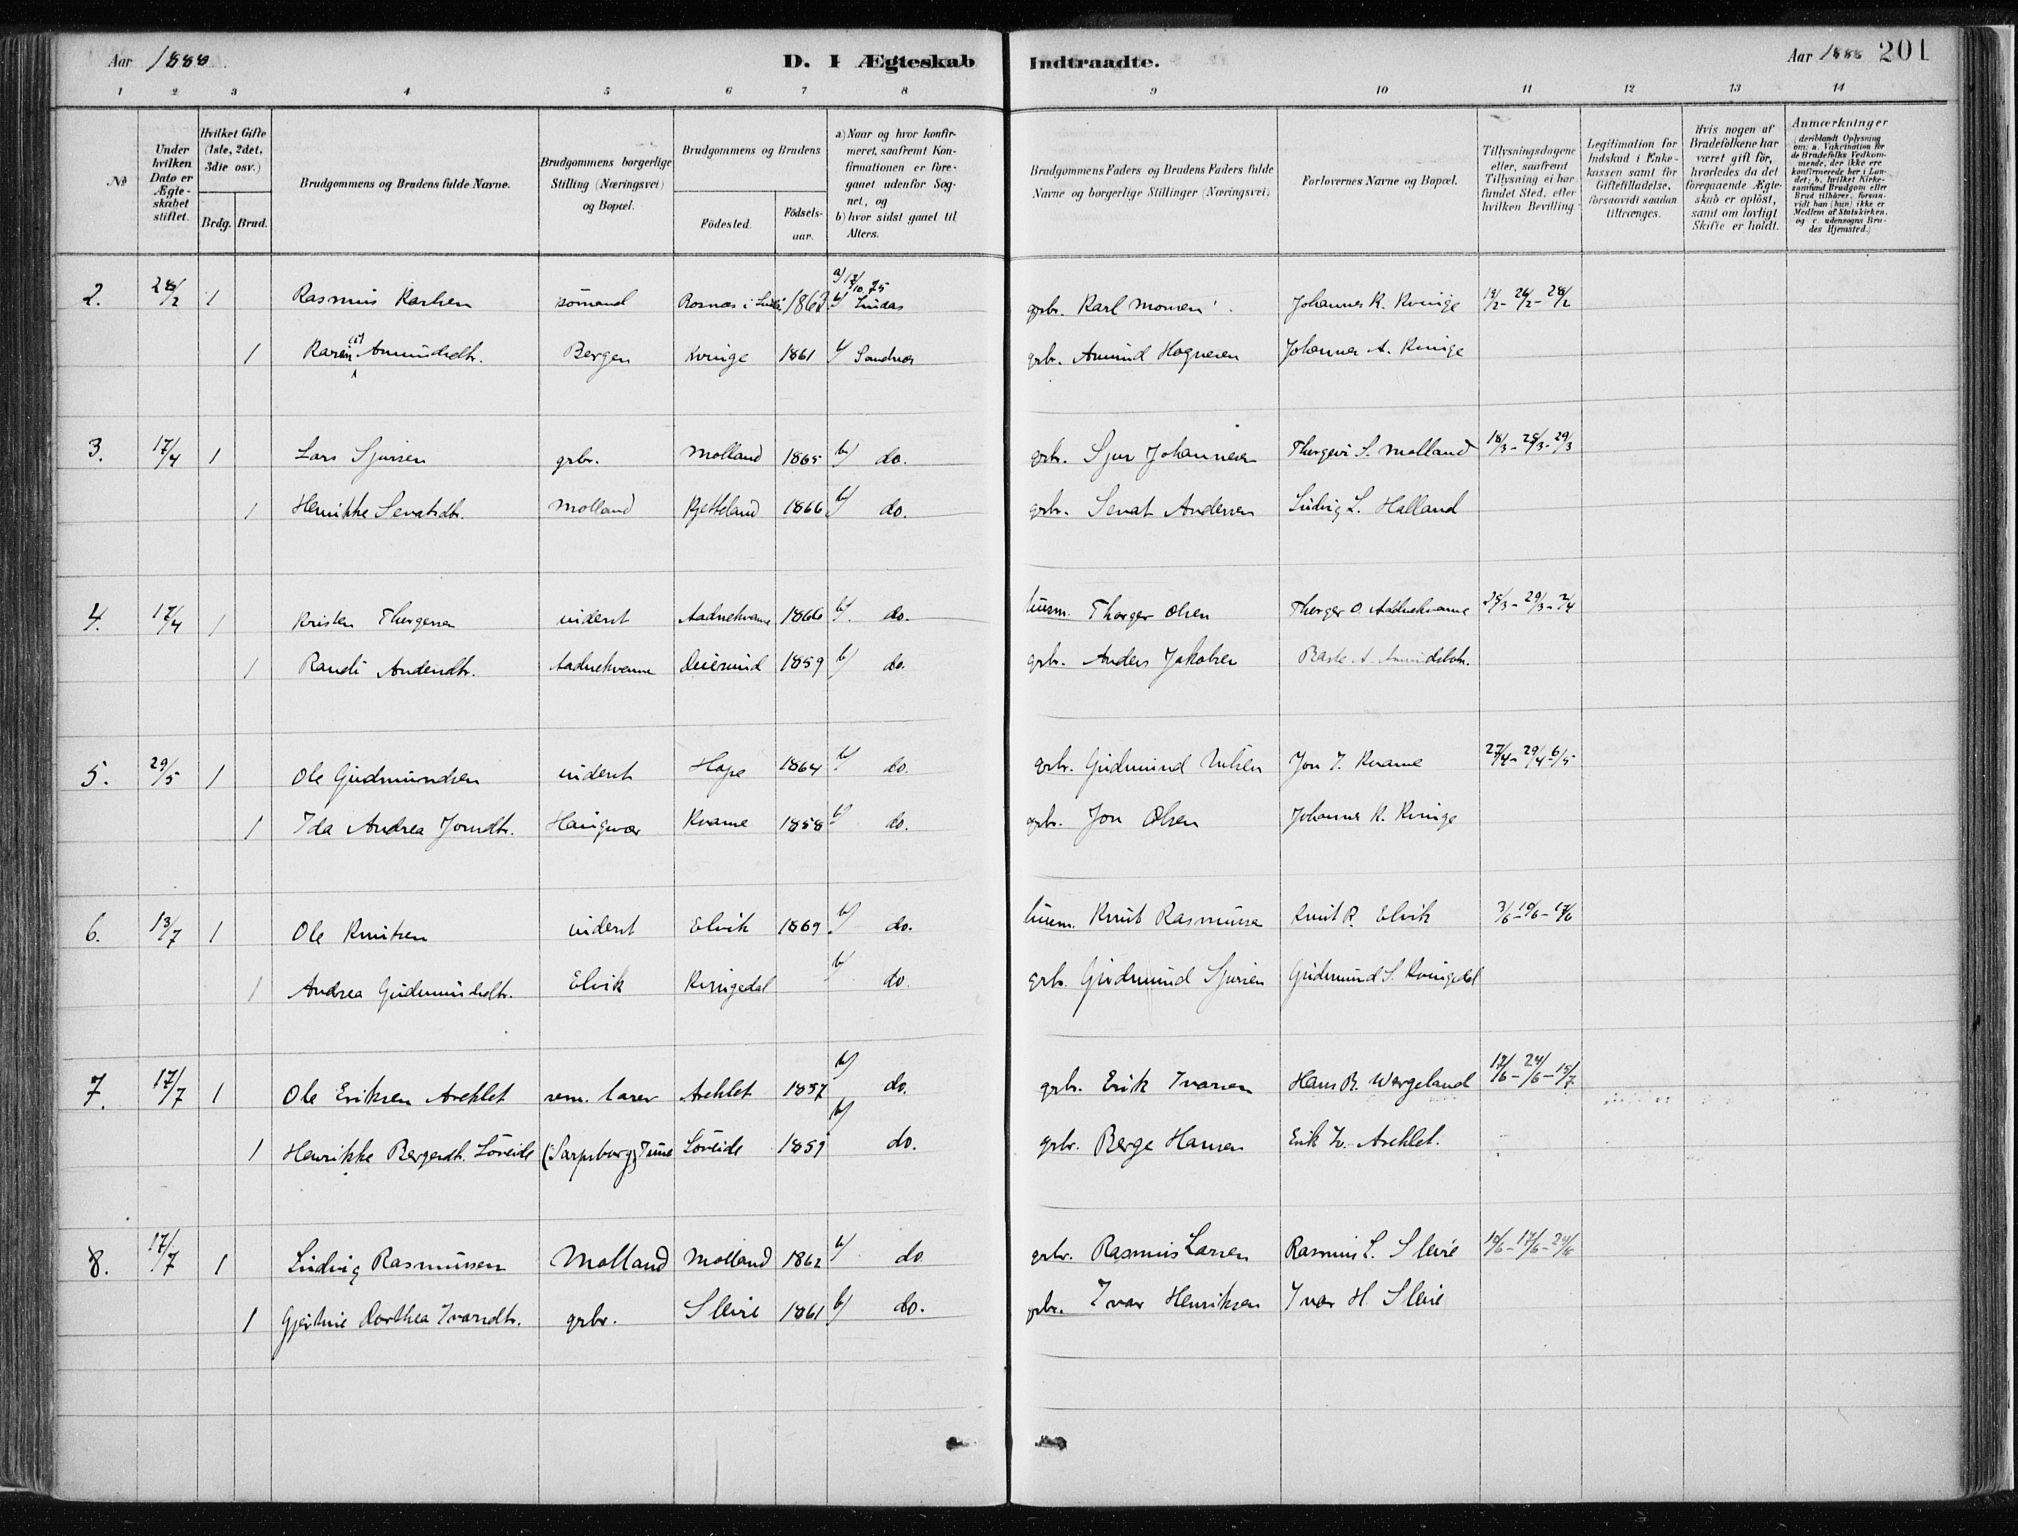 Aar 1888
D. I Ægteskab Indtraadte.
Aar 1888 201
1 2 3 4 5 6 7 8 9 10 11 12 13 14
No
Under hvilken Dato er Ægteskabet stiftet.
Hvilket Gifte (1ste, 2det, 3die osv.)
Brdg. Brud.
Brudgommens og Brudens fulde Navne.
Brudgommens borgerlige Stilling (Næringsvei) og Bopæl.
Brudgommens og Brudens
Födested. Födselsaar.
a) Naar og hvor konfirmeret, saafremt Konfirmationen er foreganet udenfor Sognet, og
b) hvor sidst ganet til Alters.
Brudgommens Faders og Brudens Faders fulde Navne og borgerlige Stillinger (Næringsvei)
Forlovernes Navne og Bopæl.
Tillysningsdagene eller, saafremt Tillysning ei har fundet Sted, efter hvilken Bevilling
Legitimation for Indskud i Enkekassen samt for Giftetilladelse, forsaavidt saadan tiltrænges.
Hvis nogen af Brudefolkene har været gift för, hvorledes da det foregaaende Ægteskab er oplöst, samt om lovligt Skifte er holdt.
Anmærkninger (deriblandt Oplysning om: a. Vakcination for de Brudefolks Vedkommende, der ikke ere konfirmerede her i Landet; b. hvilket Kirkesamfund Brudgom eller Brud tilhörer, forsaavidt han (hun) ikke er Medlem af Statskirken, og c. udensogns Brudes Hjemsted.)
2. 28/2 1 Rasmus Karlsen sömand Rosnæs i Lindås 1862 a) 17/10 75 b) Lindås grbr. Karl Monsen Johannes K. Kvinge 19/2 - 26/2 - 28/2
1 Karen Amundsdtr. Bergen Kvinge 1861 b) Sandnes grbr. Amund Hognesen Johannes A. Kvinge
3. 17/4 1 Lars Sjursen grbr. Molland 1865 b) do. grbr. Sjur Johannesen Thorgeir S. Molland 18/3 - 25/3 - 29/3
1 Henrikke Senatsdtr. Molland Kjetteland 1866 b) do. grbr. Senat Andersen Ludvig L. Halland
4. 17/4 1 Kristen Thorgersen inderst Aadnekvame 1866 b) do. husm. Thorger Olsen Thorger O. Aadnekvame 25/3 - 29/3 - 2/4
1 Randi Andersdtr. Aadnekvame 1859 b) do. grbr. Anders Jakobsen
5. 29/5 1 Ole Gudmundsen inderst Hope 1864 b) do. grbr. Gudmund Nilsen Jon J. Kvame 27/4 - 29/4 - 6/5
1 Ida Andrea Jonsdtr. Haugsvær Kvame 1858 b) do. grbr. Jon Olsen Johannes K. Kvinge
6. 13/7 1 Ole Knutsen inderst Elvik 1869 b) do. husm. Knut Rasmussen Knut R. Elvik 3/6 - 10/6 - 17/6
1 Andrea Gudmundsdtr. Elvik Kvingedal b) do. grbr. Gudmund Sjursen Gudmund S. Kvingedal
7. 17/7 1 Ole Eriksen Areklet sem. lærer Areklet 1857 b) do. grbr. Erik Ivarsen Hans B. Wergeland 17/6 - 24/6 - 15/7
1 Henrikke Bergesdt. Löveide (Sarpsborg) Tune Löveide 1859 b) do. grbr. Berge Hansen Erik Iv. Areklet.
8. 17/7 1 Ludvig Rasmussen Molland Molland 1862 b) do. grbr. Rasmus Larsen Rasmus L. Sleire 10/6 - 17/6 - 24/6
1 Gjertine Dorthea Ivarsdtr. grbr. Sleire 1861 b) do. grbr. Ivar Henriksen Ivar H. Sleire